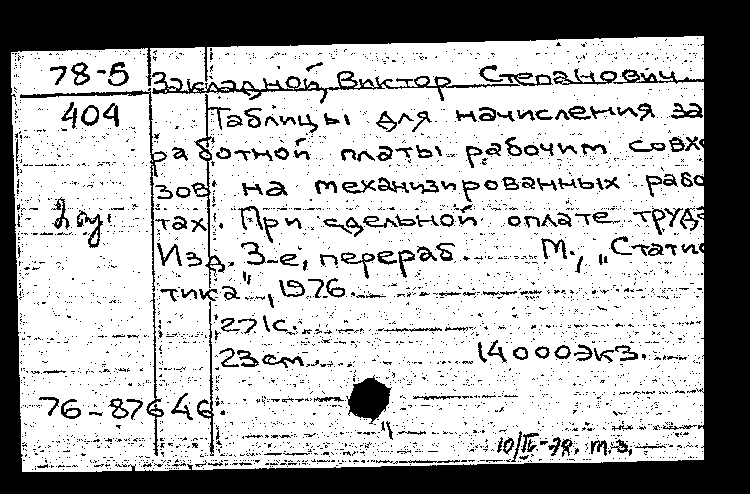 78-5 Закладной, Виктор Степанович
404 Таблицы для начисления за
работной платы рабочим совхо
зов на механизированных рабо
тах. При сдельной оплате труда
Изд. 3-е, перераб. М., „Статис
тика", 1976.
271с.
23 см. 14000экз.
76-87646.
10/IV-78. т.з.